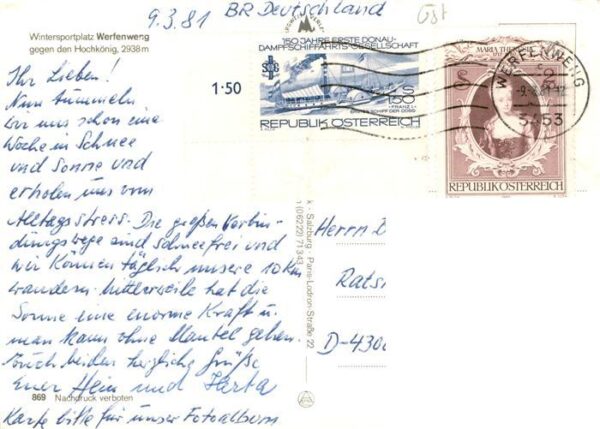 9.3.81 BR Deutschland
Wintersportplatz Werfenweng
gegen den Hochkönig, 2938 m
Ihr Lieben!
Nun tummeln
wir uns schon eine
Woche in Schnee
und Sonne und
erholen uns vom
Alltagsstress. Die großen Verbin-
dungswege sind schneefrei und
wir können täglich unsere 10 km
wandern. Mittlerweile hat die
Sonne eine enorme Kraft u.
man kann ohne Mantel gehen.
Euch beiden herzliche Grüße
Euer Hein und Herta
869 Nachdruck verboten
Karte bitte für unser Fotoalbum
1·50
150 JAHRE ERSTE DONAU-
DAMPFSCHIFFAHRTS GESELLSCHAFT
S 1.50
REPUBLIK ÖSTERREICH
MARIA THERESIA
S
REPUBLIK ÖSTERREICH
WERFENWENG
5453
- Salzburg - Paris-Lodron-Straße 22
(06222) 71343
Herrn
Rats
D-430